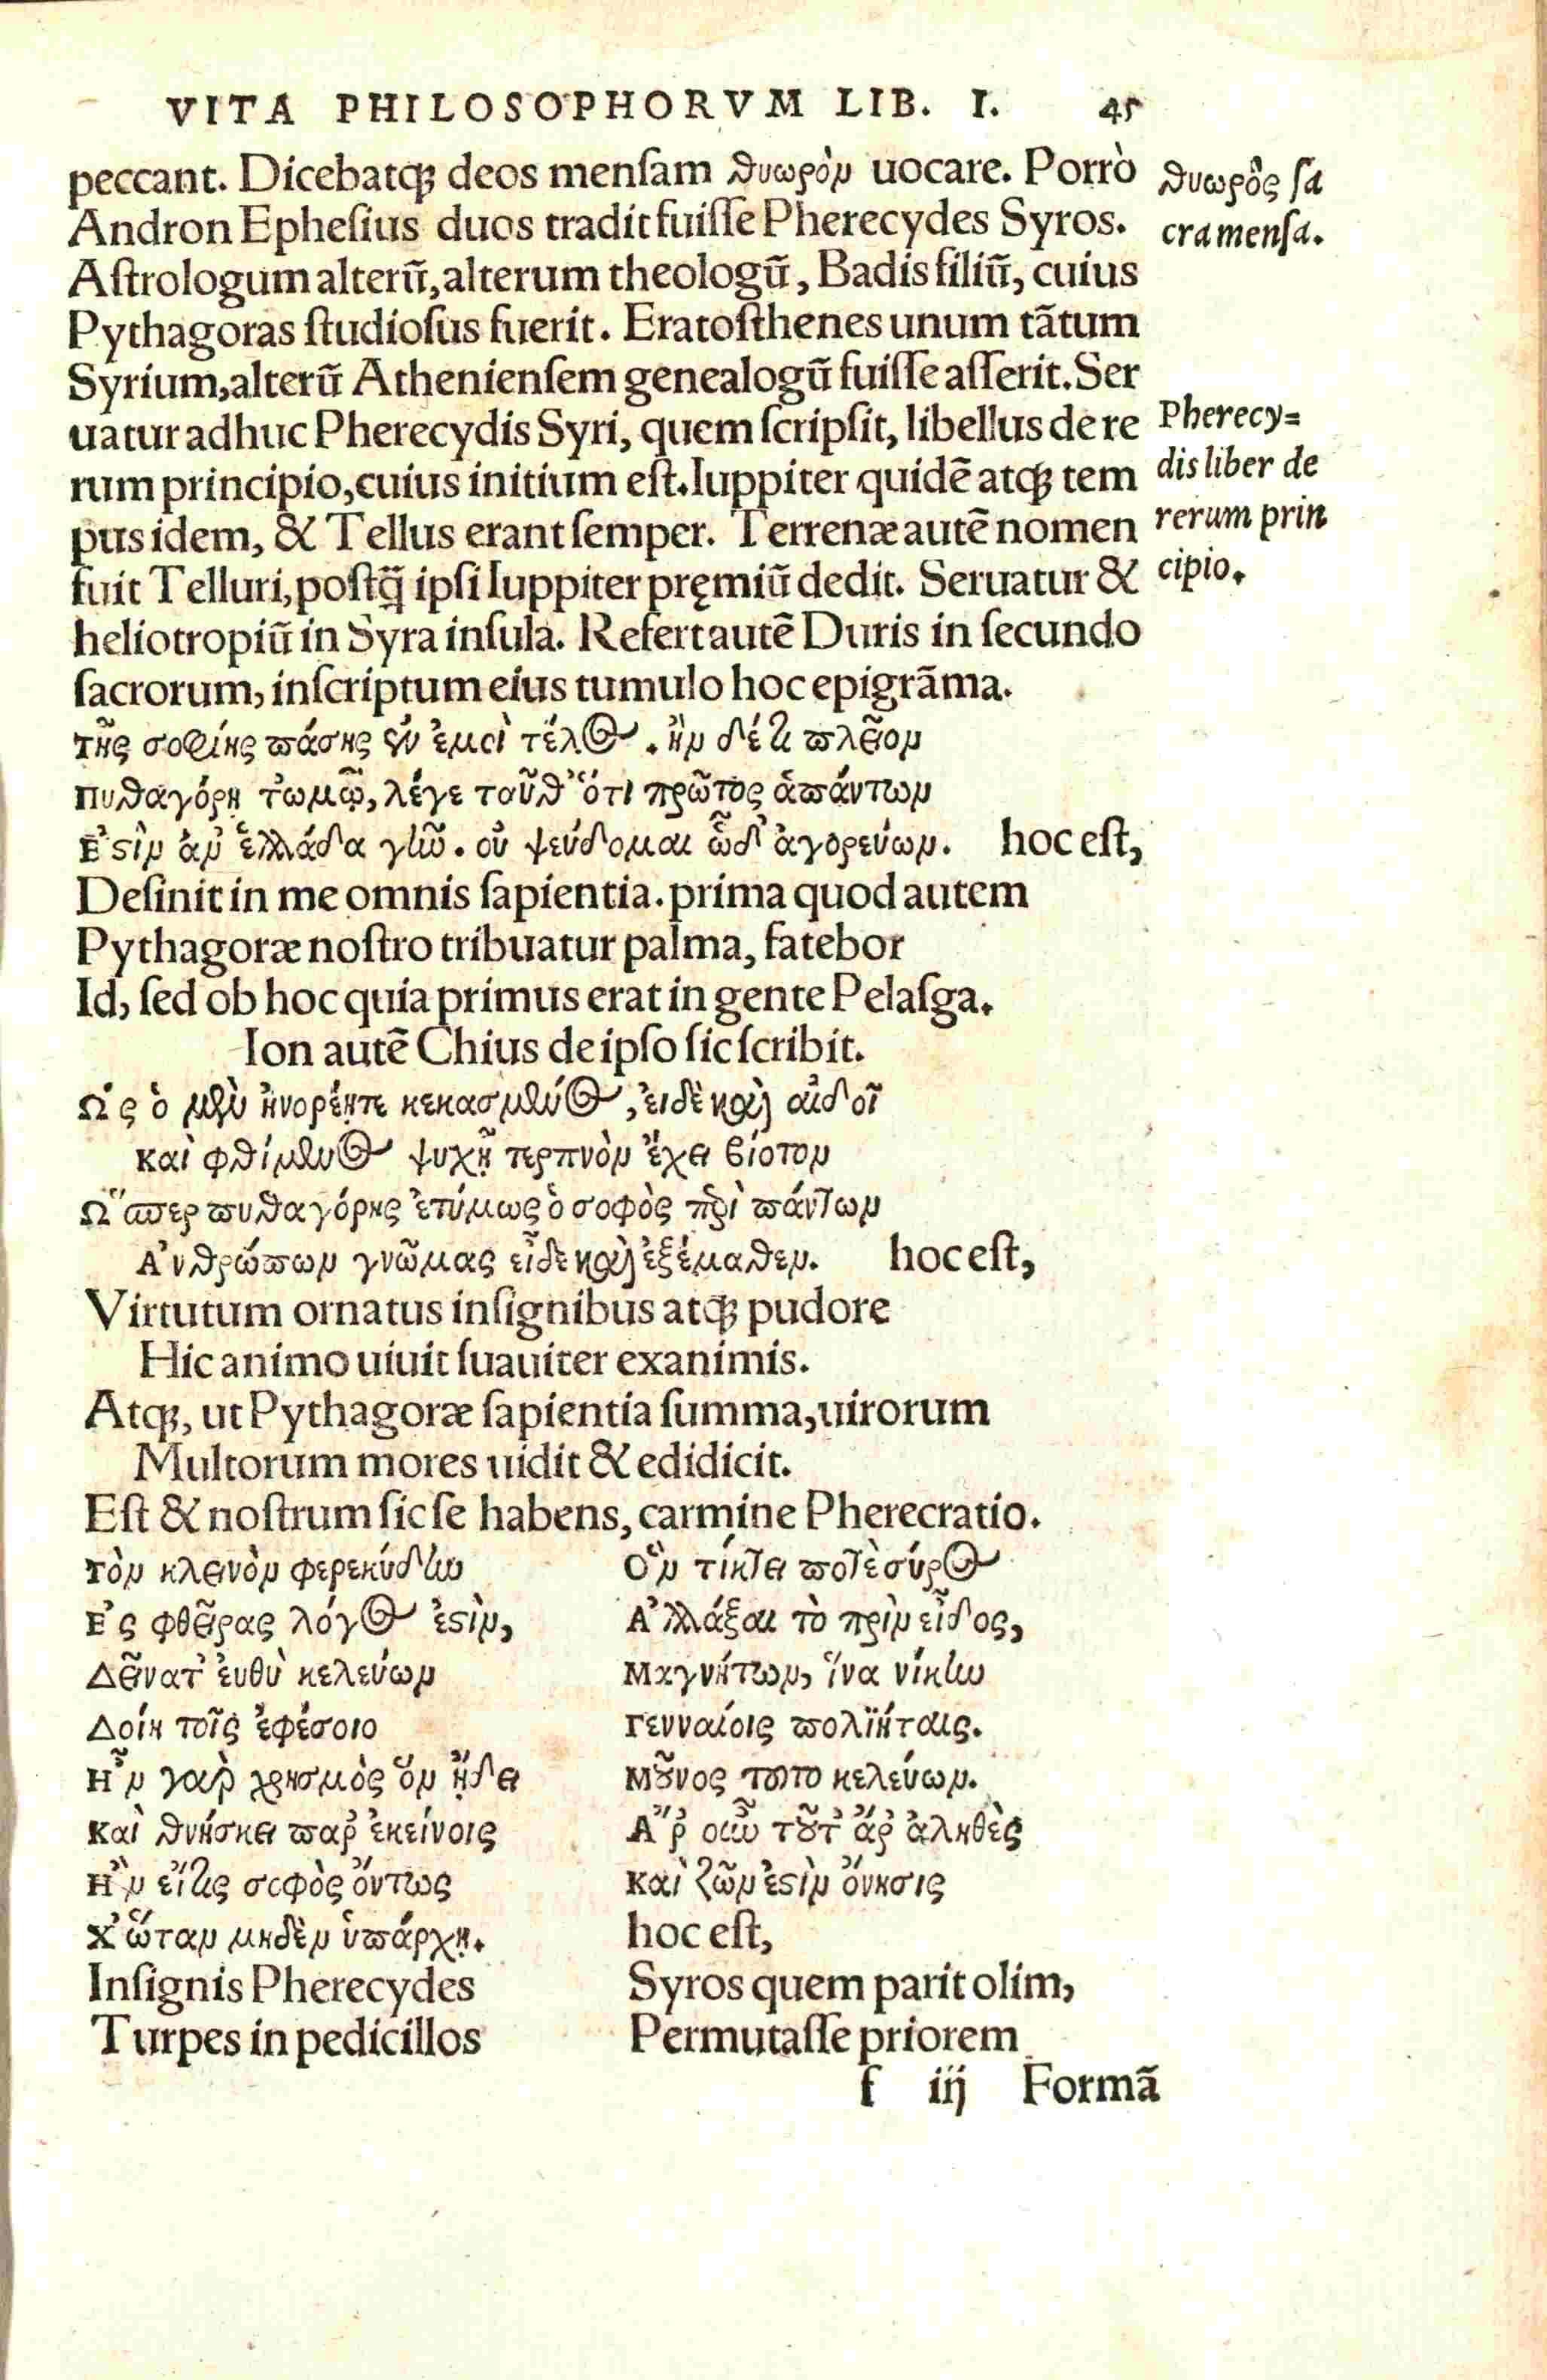 VITA PHILOSOPHORVM LIB. I. 45
peccant. Dicebatq́; deos mensam θυωρὸν uocare. Porrò
Andron Ephesius duos tradit fuisse Pherecydes Syros.
Astrologum alterũ, alterum theologũ, Badis filiũ, cuius
Pythagoras studiosus fuerit. Eratosthenes unum tãtum
Syrium, alterũ Atheniensem genealogũ fuisse asserit. Ser
uatur adhuc Pherecydis Syri, quem scripsit, libellus de re
rum principio, cuius initium est. Iuppiter quidẽ atq́; tem
pus idem, & Tellus erant semper. Terrenæ autẽ nomen
fuit Telluri, postq̃ ipsi Iuppiter pręmiũ dedit. Seruatur &
heliotropiũ in Syra insula. Refert autẽ Duris in secundo
sacrorum, inscriptum eius tumulo hoc epigrãma.
Τῆς σοφίης πάσης ἐν ἐμοὶ τέλος. ἢν δέ τι πλεῖον
Πυθαγόρῃ τὠμῷ, λέγε ταῦθ' ὅτι πρῶτος ἁπάντων
Ἐστὶν ἀν' ἑλλάδα γῆν. οὐ ψεύδομαι ὧδ' ἀγορεύων. hoc est,
Desinit in me omnis sapientia. prima quod autem
Pythagoræ nostro tribuatur palma, fatebor
Id, sed ob hoc quia primus erat in gente Pelasga.
Ion autẽ Chius de ipso sic scribit.
Ὣς ὁ μὲν ἠνορέῃτε κεκασμένος, ἠδὲ καὶ αἰδοῖ
Καὶ φθίμενος ψυχῇ τερπνὸν ἔχει βίοτον
Ὥσπερ πυθαγόρης ἐτύμως ὁ σοφὸς περὶ πάντων
Ἀνθρώπων γνώμας εἶδε καὶ ἐξέμαθεν. hoc est,
Virtutum ornatus insignibus atq́; pudore
Hic animo uiuit suauiter exanimis.
Atq́;, ut Pythagoræ sapientia summa, uirorum
Multorum mores uidit & edidicit.
Est & nostrum sic se habens, carmine Pherecratio.
Τὸν κλεινὸν φερεκύδην Ὃν τίκτει ποτὲ σύρος
Ἐς φθεῖρας λόγος ἐστὶν, Ἀλλάξαι τὸ πρὶν εἶδος,
Δεῖνατ' εὐθὺ κελεύων Μαγνήτων, ἵνα νίκην
Δοίη τοῖς ἐφέσοιο Γενναίοις πολιήταις.
Ἦν γὰρ χρησμὸς ὃν ᾔδει Μοῦνος τοῦτο κελεύων.
Καὶ θνήσκει παρ' ἐκείνοις Ἄρ' οὖν τοῦτ' ἄρ' ἀληθὲς
Ἢν εἴτις σοφὸς ὄντως Καὶ ζῶν ἐστὶν ὄνησις
Χ' ὥταν μηδὲν ὑπάρχῃ. hoc est,
Insignis Pherecydes Syros quem parit olim,
Turpes in pedicillos Permutasse priorem
f iij Formã
θυωρὸς sa
cra mensa.
Pherecy=
dis liber de
rerum prin
cipio.